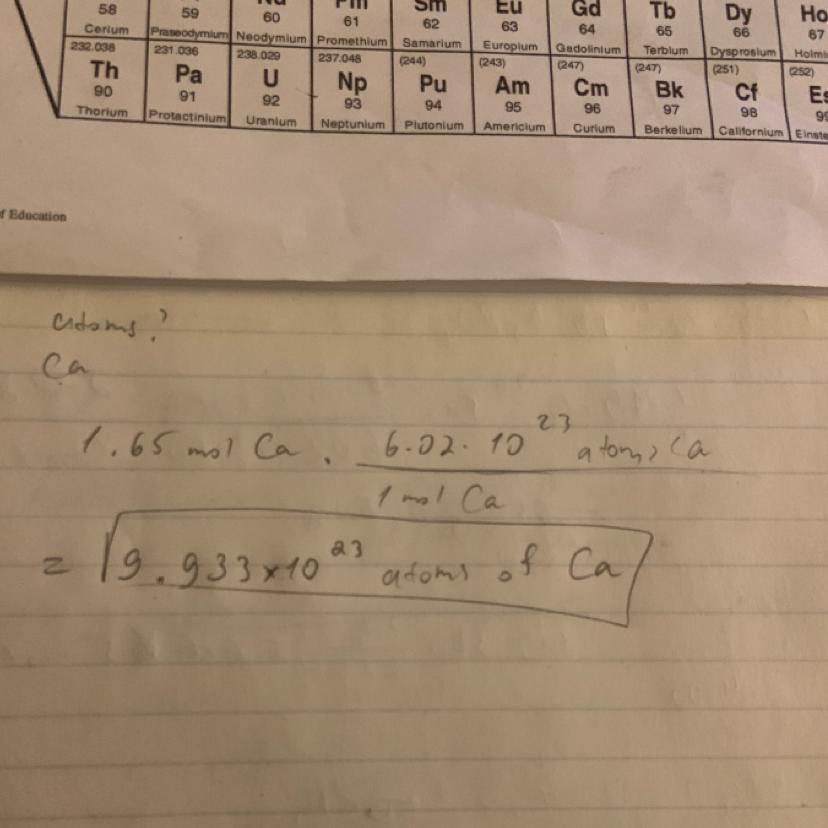 58 59 60 61 62 63 64 65 66 67
Cerium Praseodymium Neodymium Promethium Samarium Europium Gadolinium Terbium Dysprosium
Sm Eu Gd Tb Dy Ho
232.038 231.036 238.029 237.048 (244) (243) (247) (247) (251) (252)
Th Pa U Np Pu Am Cm Bk Cf Es
90 91 92 93 94 95 96 97 98
Thorium Protactinium Uranium Neptunium Plutonium Americium Curium Berkelium Californium
of Education
atoms?
Ca
1.65 mol Ca . 6.02 . 10^23 atoms Ca
1 mol Ca
= 9.933×10^23 atoms of Ca